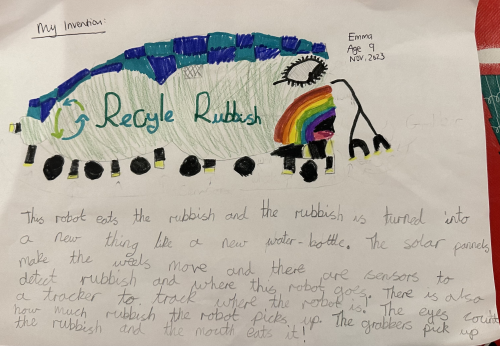 My Invention:
Emma
Age 9
Nov. 2023
Recyle Rubbish
This robot eats the rubbish and the rubbish is turned into
a new thing like a new water-bottle. The solar pannels
make the weels move and there are sensors to
detect rubbish and where this robot goes. There is also
a tracker to track where the robot is. The eyes count
how much rubbish the robot picks up. The grabbers pick up
the rubbish and the mouth eats it!